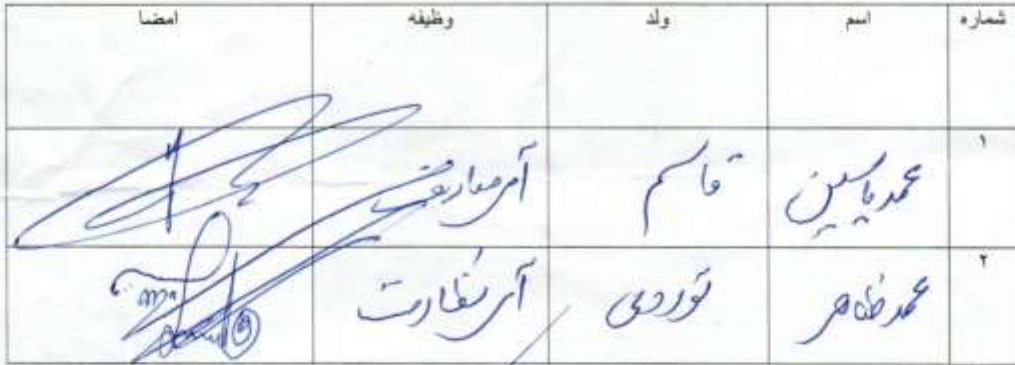 شماره اسم ولد وظیفه امضا
۱ محمد یاسین قاسم آمر معارف
۲ محمد ظاهر توردی آمر نظارت